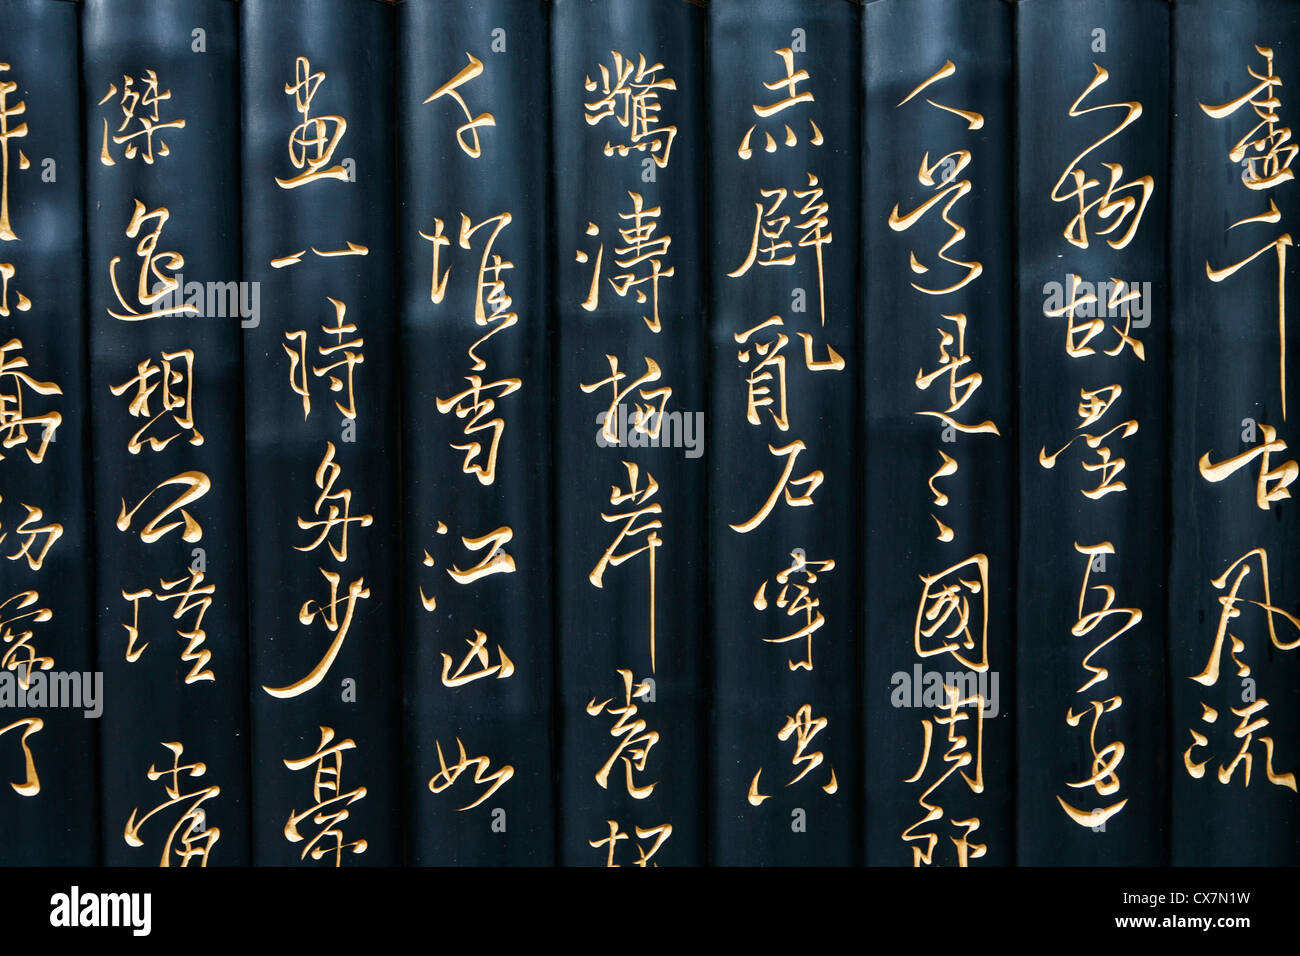 盡千古風流
人物故壘西邊
人道是三國周郎
赤壁亂石穿空
驚濤拍岸卷起
千堆雪江山如
畫一時多少豪
傑遙想公瑾當
年小喬初嫁了
alamy
Image ID: CX7N1W
www.alamy.com